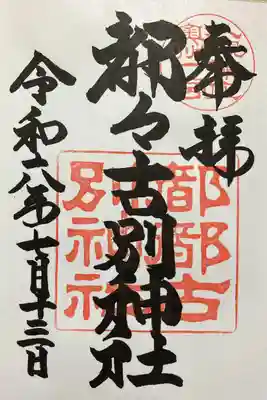 奉拝
都々古別神社
都都古
別神社
令和六年七月十三日